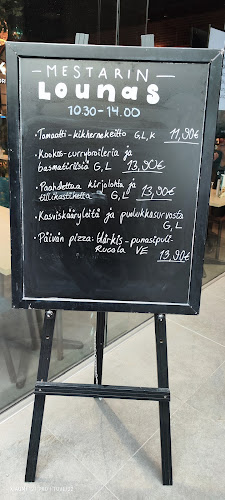 MESTARIN
LOUNAS
10.30-14.00
• Tomaatti-kikhernekeitto G,L,K 11,90€
• Kookos-currybroileria ja
basmatiriisiä G,L 13,90€
• Paahdettua kirjolohta ja
tillikastiketta G,L 13,90€
• Kasviskääryleitä ja
G,L
• Päivän pizza: Härkis-punasipuli-
Rucola VE 13,90€